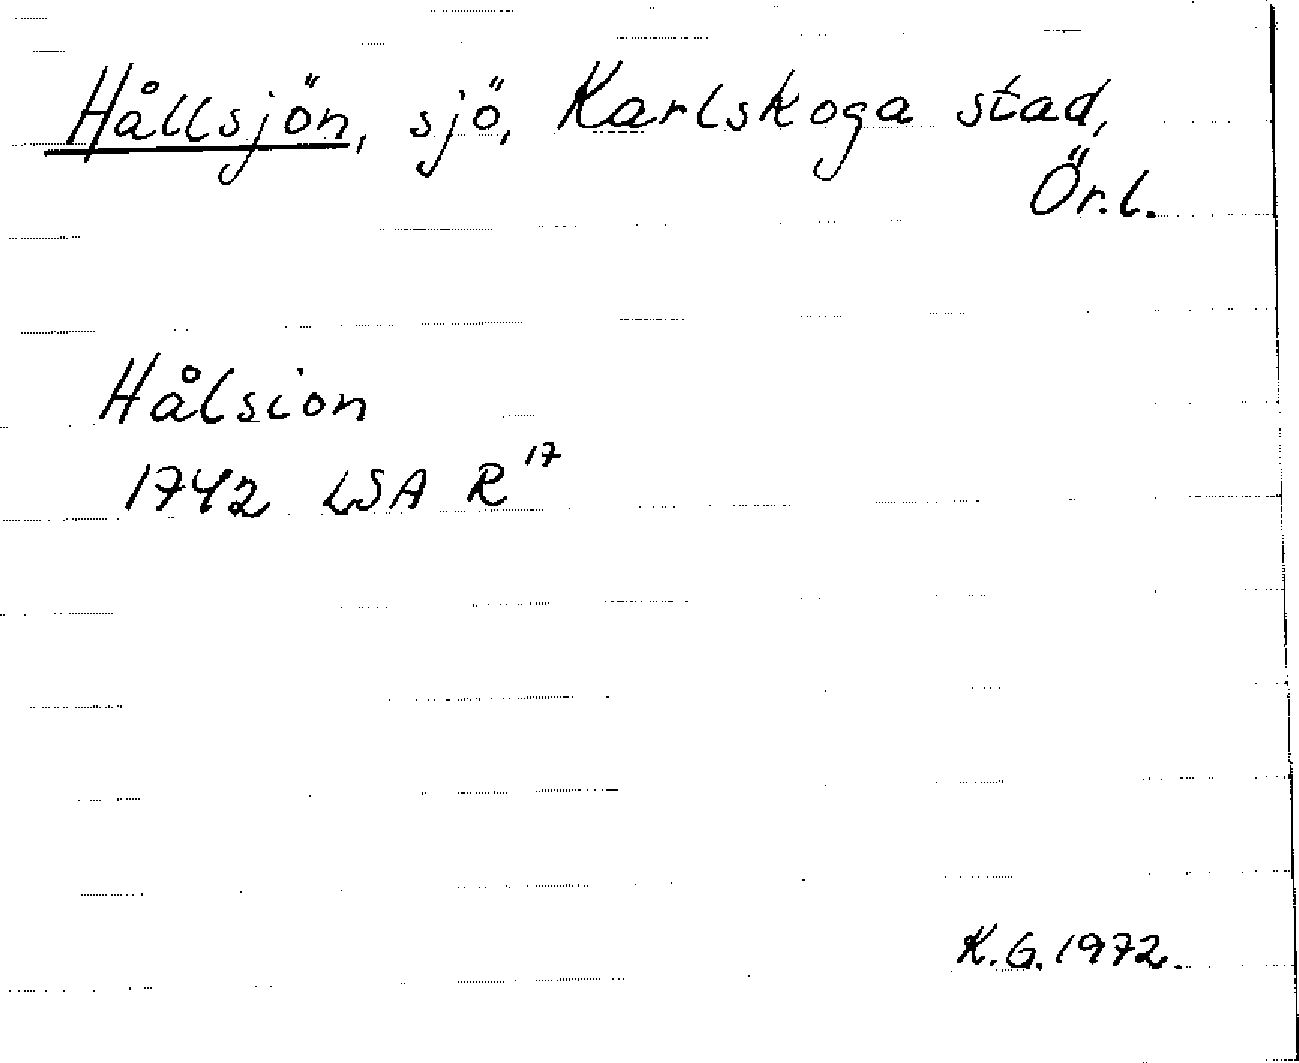 Hållsjön, sjö, Karlskoga stad,
Ör.l.
Hålsion
1742 LSA R¹⁷
K.G. 1972.